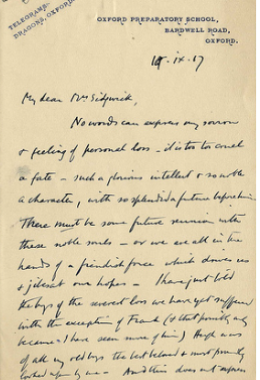 TELEGRAMS:
DRAGONS, OXFORD.
OXFORD PREPARATORY SCHOOL,
BARDWELL ROAD,
OXFORD.
ix.17
My dear Mrs Sidgwick,
No words can express my sorrow
& feeling of personal loss - it is too cruel
a fate - such a glorious intellect & so noble
a character, with so splendid a future before him.
There must be some future reunion with
these noble souls - or we are all in the
hands of a fiendish force which drives us
& jests at our hopes - I have just told
the boys of the severest loss we have yet suffered
with the exception of Frank (& that possibly only
because I have seen more of him) Hugh was
of all my old boys the best beloved & most proudly
looked upon by me - And this does not express